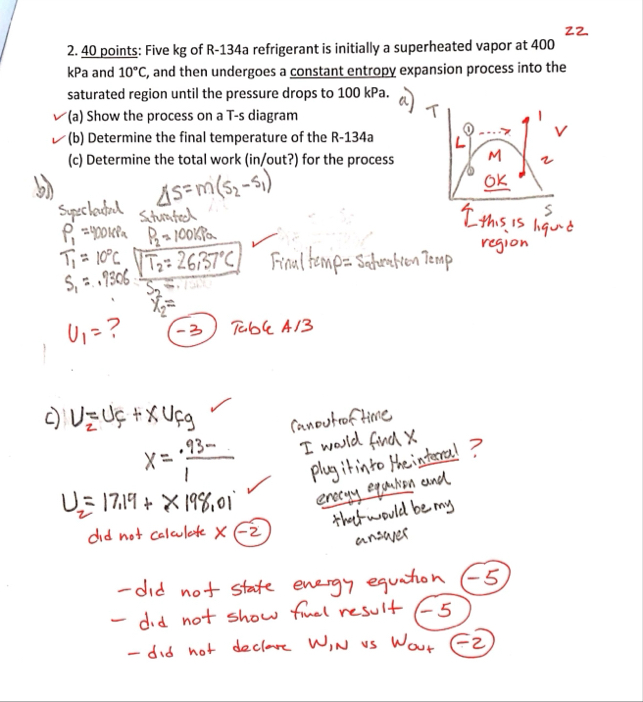 22
2. 40 points: Five kg of R-134a refrigerant is initially a superheated vapor at 400
kPa and 10°C, and then undergoes a constant entropy expansion process into the
saturated region until the pressure drops to 100 kPa.
✓(a) Show the process on a T-s diagram
✓(b) Determine the final temperature of the R-134a
(c) Determine the total work (in/out?) for the process
a)
T
1
L
M
V
2
OK
S
↑ this is liquid
region
b)
ΔS=m(s₂-s₁)
Superheated Saturated
P₁=400kPa P₂=100kPa
T₁=10°C T₂=26,37°C ✓ Final temp= Saturation Temp
S₁=.9306 S₂=
X₂=
U₁=? -3 Table A13
c) U₂=Uf+XUfg ✓
X=.93-
1
U₂=17.19+X198.01 ✓
did not calculate X -2
ran out of time
I would find X
plug it into the internal ?
energy equation and
that would be my
answer
-did not state energy equation -5
- did not show final result -5
- did not declare WIN vs Wout -2